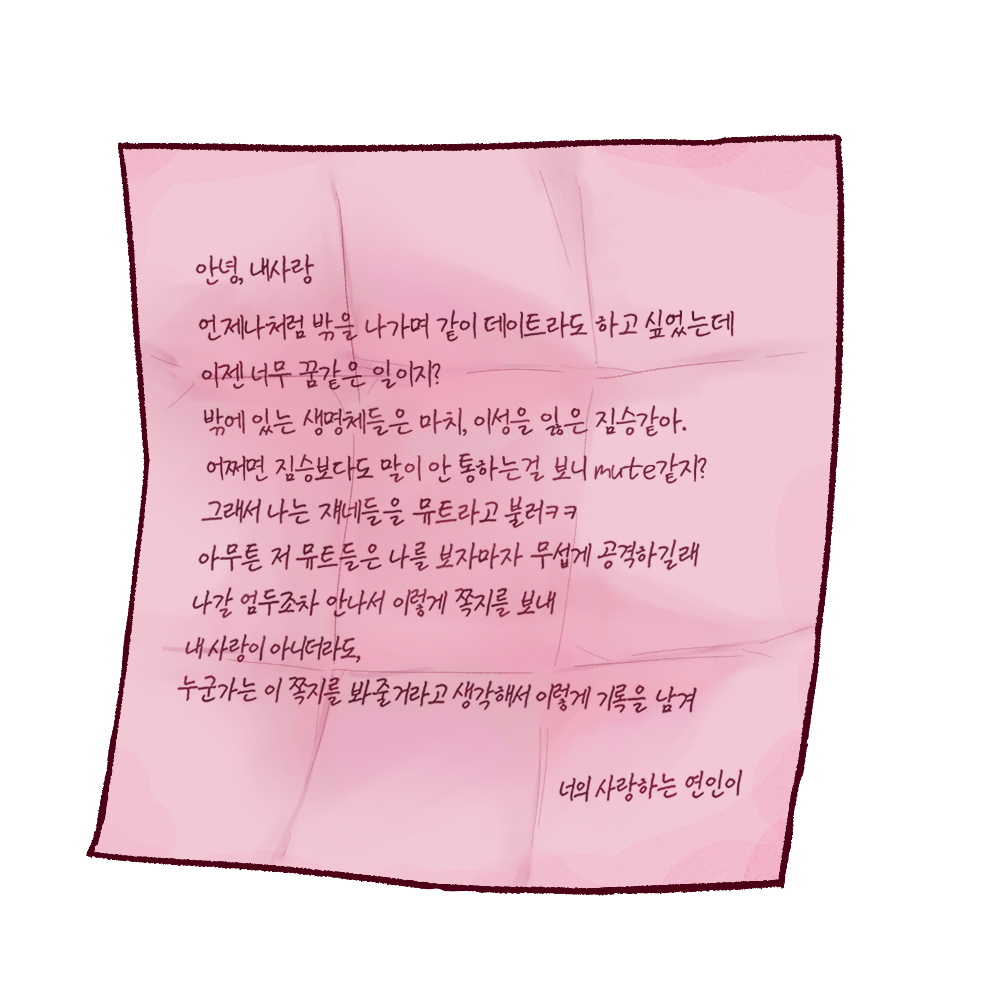 안녕, 내사랑
언제나처럼 밖을 나가며 같이 데이트라도 하고 싶었는데
이젠 너무 꿈같은 일이지?
밖에 있는 생명체들은 마치, 이성을 잃은 짐승같아.
어쩌면 짐승보다도 말이 안 통하는걸 보니 mute같지?
그래서 나는 쟤네들을 뮤트라고 불러ㅋㅋ
아무튼 저 뮤트들은 나를 보자마자 무섭게 공격하길래
나갈 엄두조차 안나서 이렇게 쪽지를 보내
내 사랑이 아니더라도,
누군가는 이 쪽지를 봐줄거라고 생각해서 이렇게 기록을 남겨
너의 사랑하는 연인이